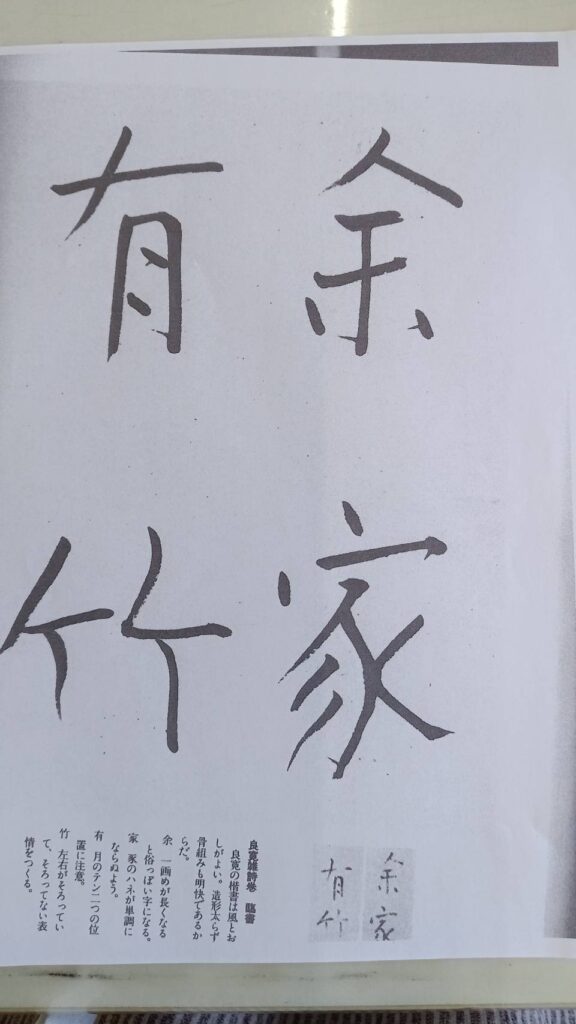 余家
有竹
余家
有竹
良寛雑詩巻　臨書
良寛の楷書は風とお
しがよい。造形太らず
骨組みも明快であるか
らだ。
余　一画めが長くなる
と俗っぽい字になる。
家　豕のハネが単調に
ならぬよう。
有　月のテン二つの位
置に注意。
竹　左右がそろってい
て、そろってない表
情をつくる。